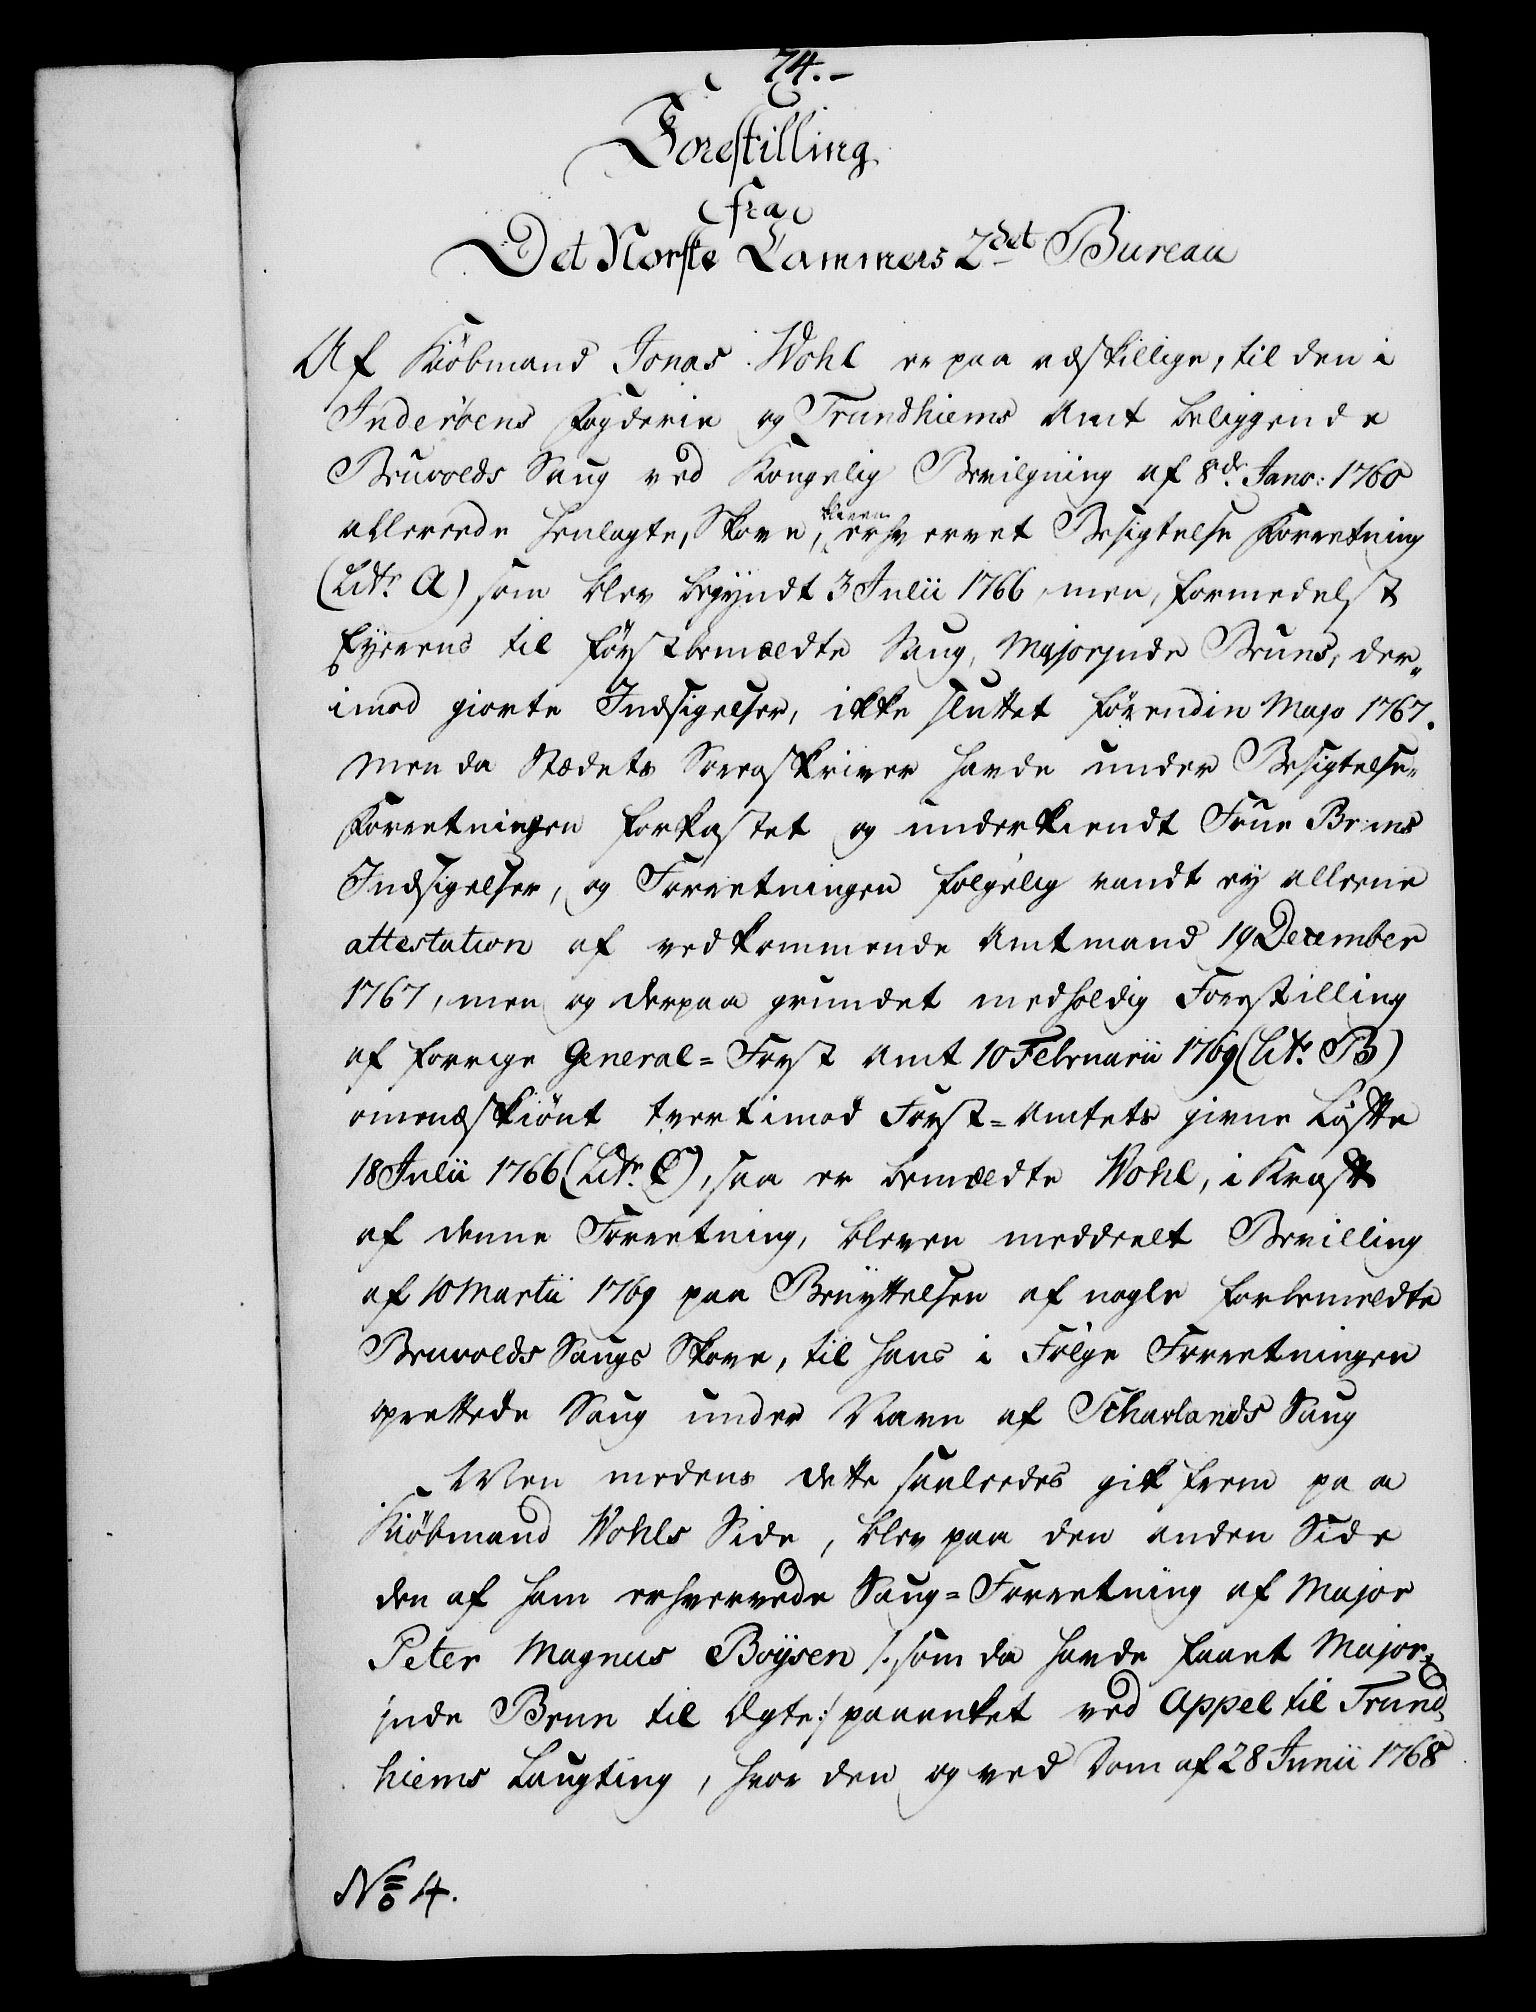 74.-
Forestilling
fra
Det Norske Cammers 2det Bureau
Af Kiøbmand Jonas Wohl er paa adskillige, til den i
Inderöens Fogderie og Trundhiems Amt beliggende
Bruvolds Saug ved Kongelig Bevilgning af 8de Janv: 1760
allereede henlagte, Skove, bleven erhvervet Besigtelse Forretning
(Litr. A) som blev begyndt 3 Julii 1766, men, formedelst
Eyerens til först bemældte Saug, Majorinde Bruns, der„
imod giorte Indsigelser, ikke sluttet förend in Majo 1767.
Men da Stædets Sorenskriver havde under Besigtelse„
Forretningen forkastet og underkiendt Frue Bruns
Indsigelser, og Forretningen folgelig vandt ey alleene
attestation af vedkommende Amtmand 19 December
1767, men og derpaa grundet medholdig Forestilling
af forrige General-Forst Amt 10 Februarii 1769 (Litr. B)
omendskiönt tvertimod Forst-Amtets givne Løfte
18 Julii 1766 (Litr. C), saa er bemældte Wohl, i Kraft
af denne Forretning, bleven meddeelt Bevilling
af 10 Martii 1769 paa Benyttelsen af nogle forbemeldte
Bruvolds Saugs Skove, til hans i Fölge Forretningen
oprettede Saug under Navn af Schavlands Saug
Men medens dette saaledes gik frem paa
Kiöbmand Wohls Side, blev paa den anden Side
den af ham erhvervede Saug-Forretning af Major
Peter Magnus Boysen /: som da havde faaet Major„
inde Brun til Ægte :/ paaanket ved Appel til Trund„
hiems Laugting, hvor den og ved Dom af 28 Junii 1768
No 4.